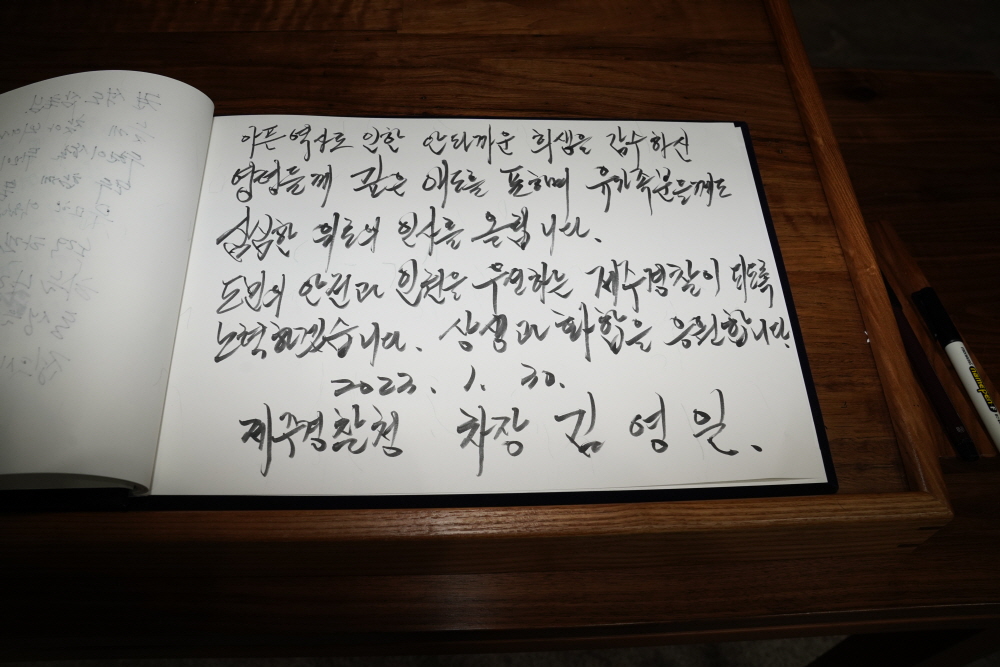 아픈 역사로 인한 안타까운 희생을 감수하신
영령들께 깊은 애도를 표하며 유가족분들께도
심심한 위로의 인사를 올립니다.
도민의 안전과 인권을 우선하는 제주경찰이 되도록
노력하겠습니다. 상생과 화합을 응원합니다.
2023. 1. 30.
제주경찰청 차장 김영일.